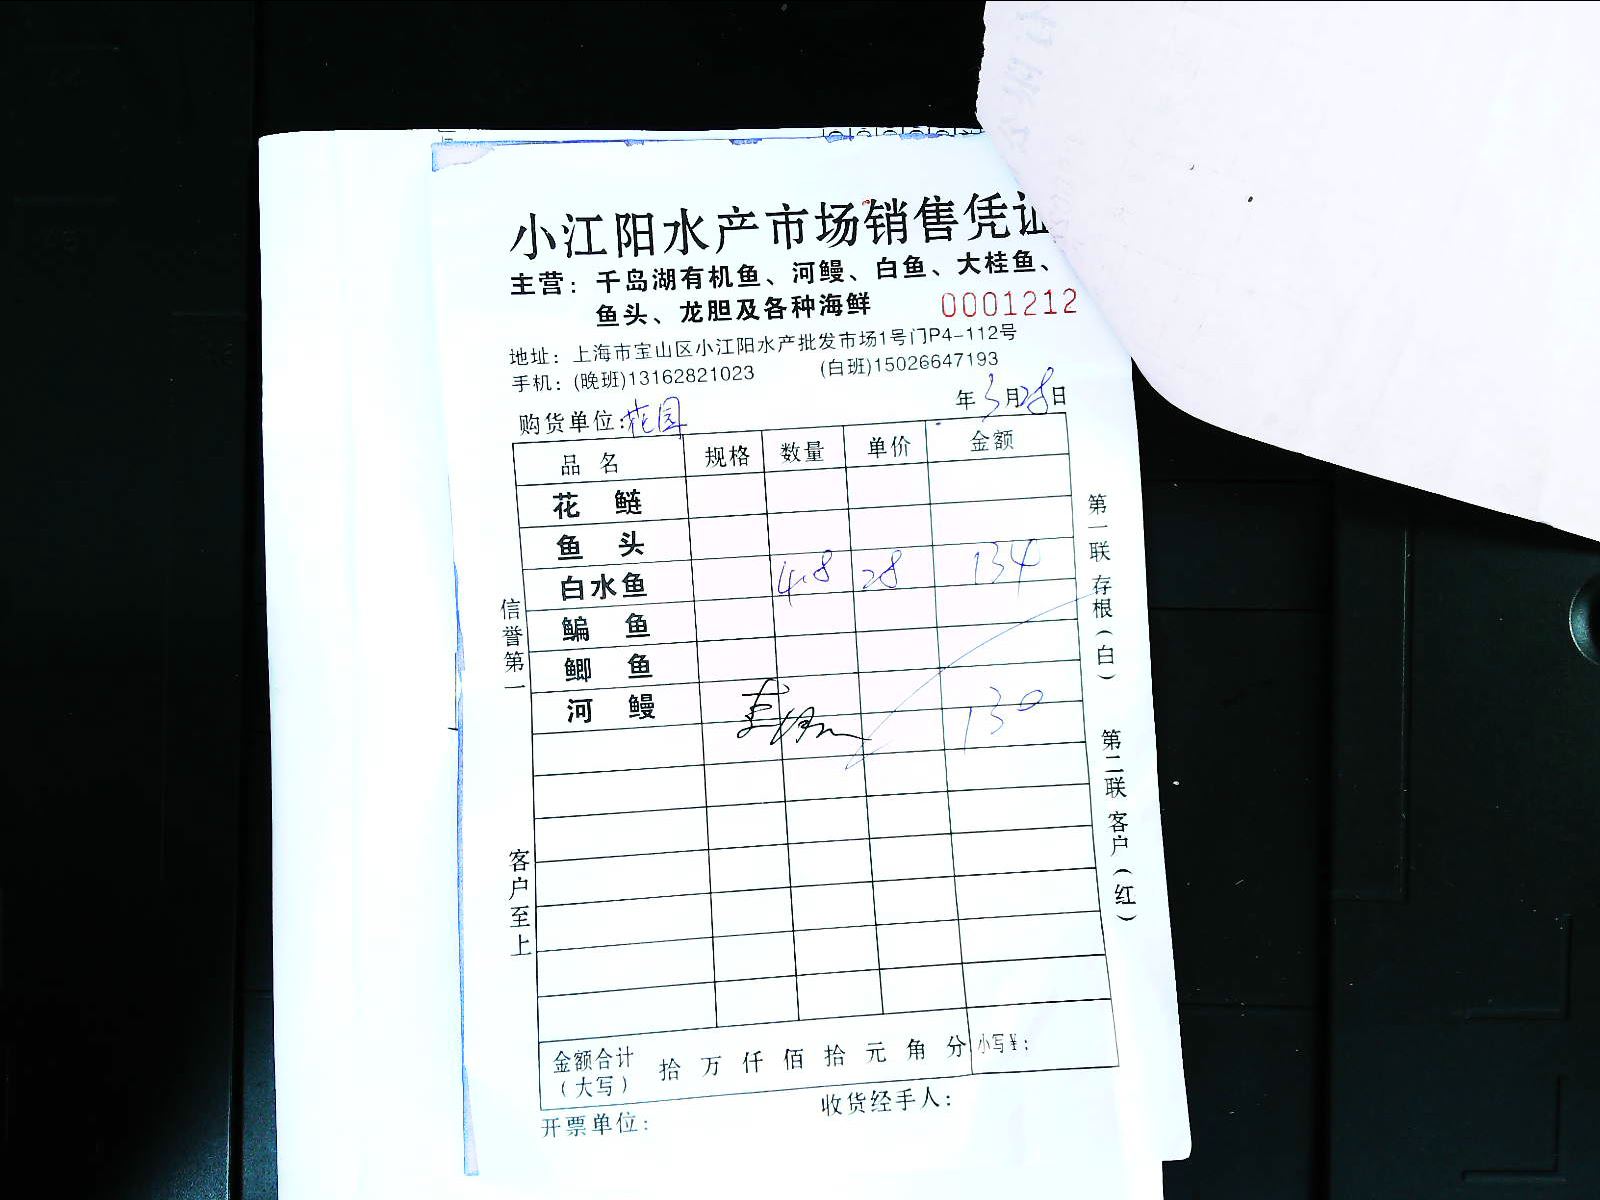 小江阳水产市场销售凭证
主营：千岛湖有机鱼、河鳗、白鱼、大桂鱼、
鱼头、龙胆及各种海鲜 0001212
地址：上海市宝山区小江阳水产批发市场1号门P4-112号
手机：(晚班)13162821023 (白班)15026647193
购货单位：花园 年 3月28日
品 名 规格 数量 单价 金额
花 鲢
鱼 头
白水鱼 4.8 28 134
鳊 鱼
鲫 鱼
河 鳗 130
信誉第一
客户至上
第一联 存根（白）
第二联 客户（红）
金额合计（大写） 拾 万 仟 佰 拾 元 角 分 小写¥：
开票单位： 收货经手人：